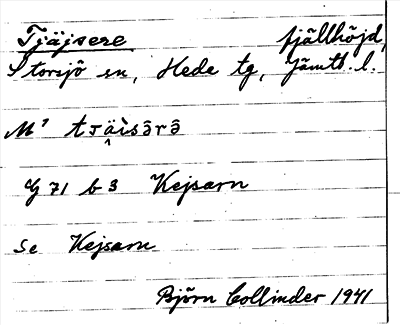 Tjäjsere fjällhöjd,
Storsjö sn, Hede tg, Jämtl. l.
M⁷ tɹä̭ìsə̂rə̂
G 71 b 3 Kejsarn
Se Kejsarn
Björn Collinder 1941